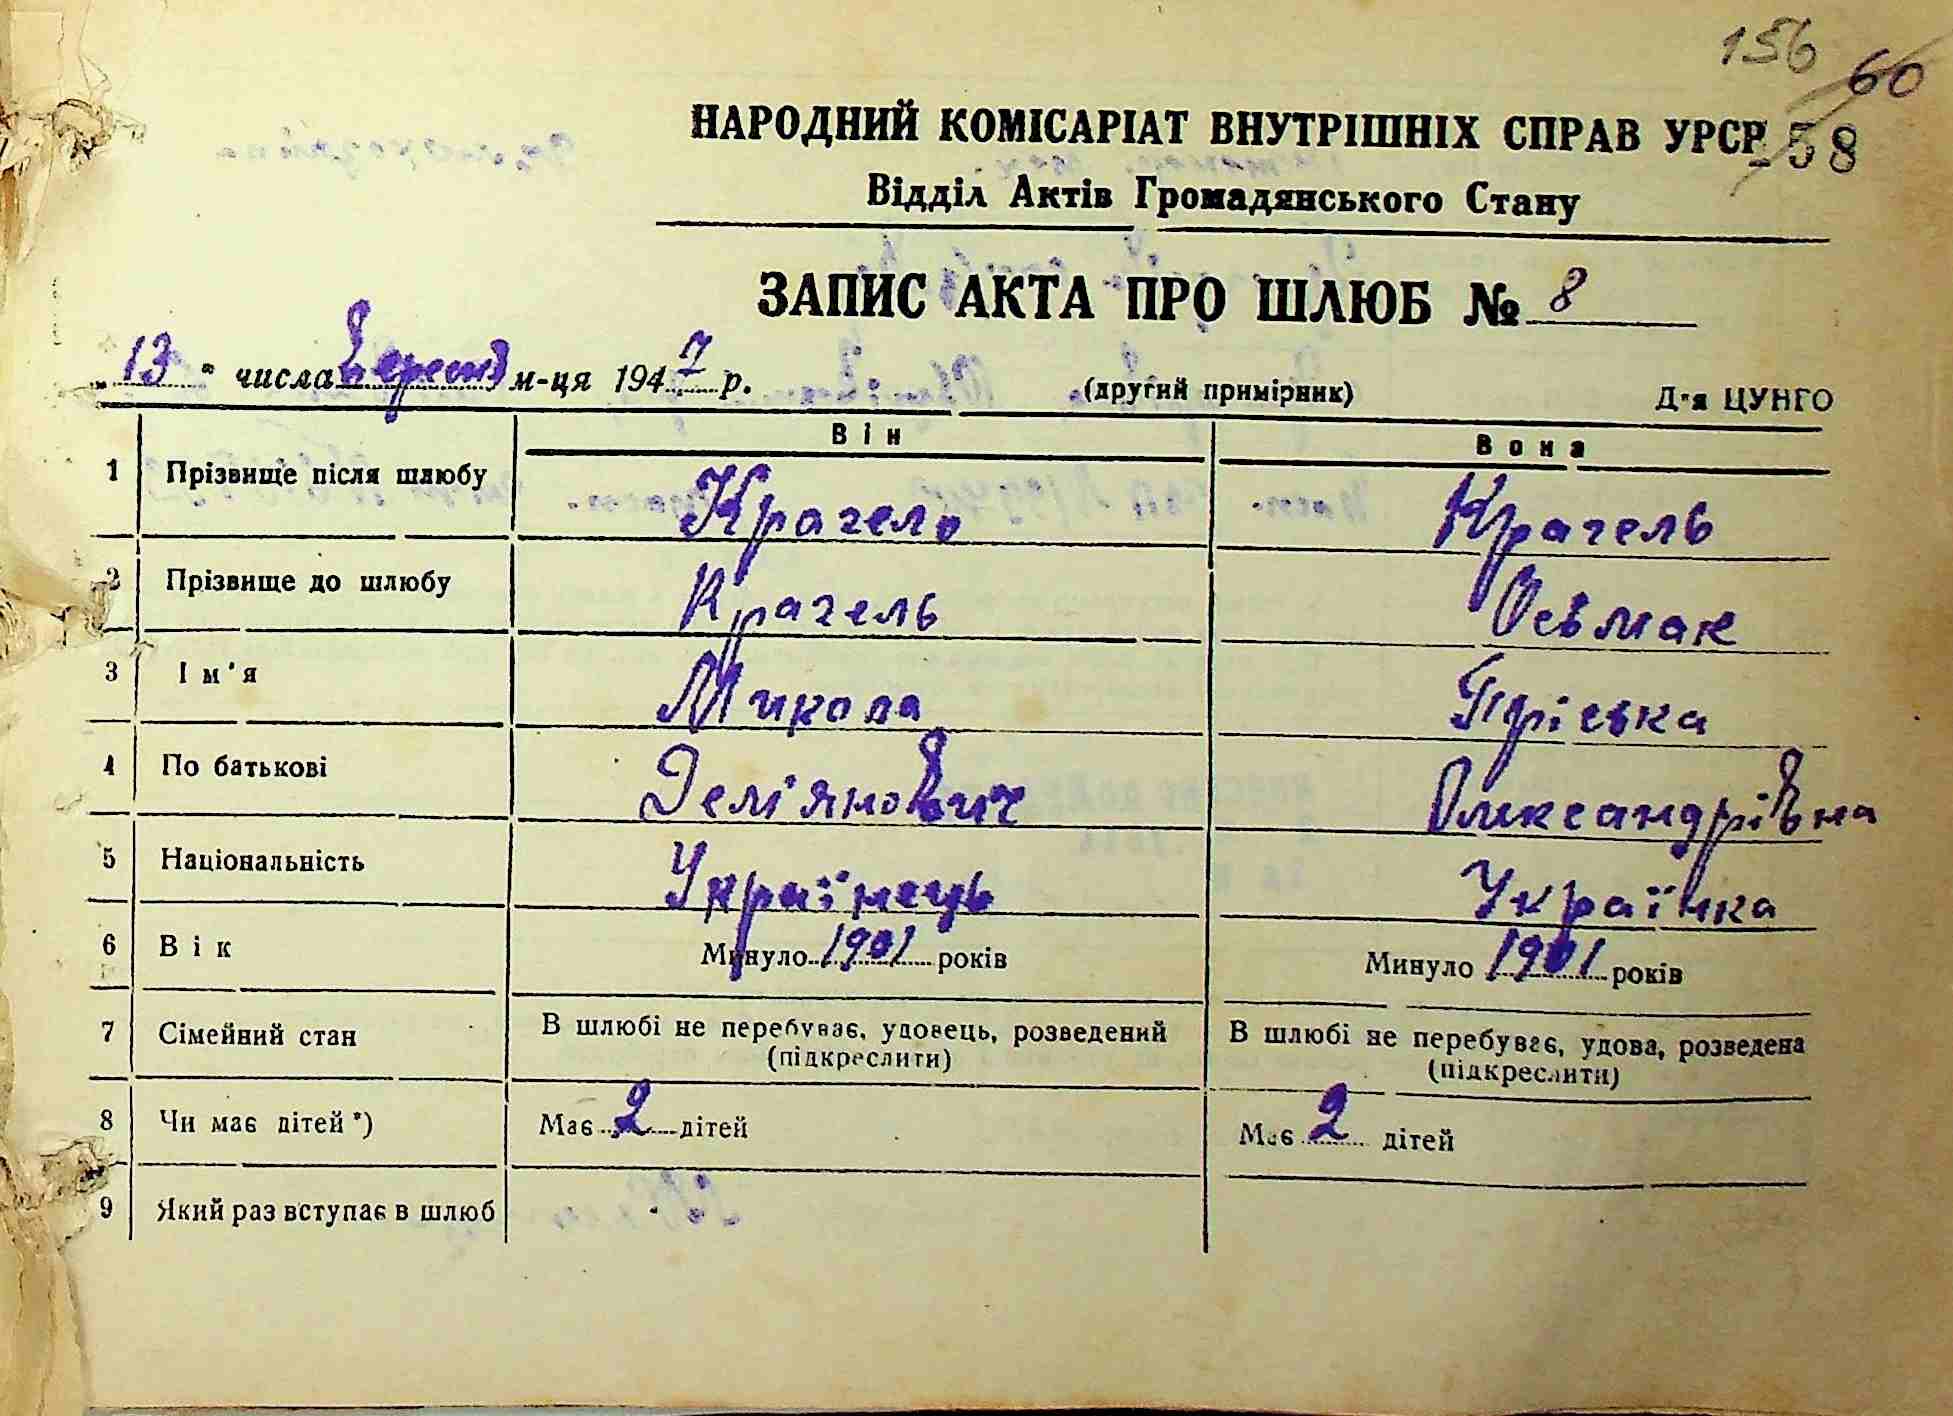 156 60
НАРОДНИЙ КОМІСАРІАТ ВНУТРІШНІХ СПРАВ УРСР 58
Відділ Актів Громадянського Стану
ЗАПИС АКТА ПРО ШЛЮБ № 8
„13" числа березня м-ця 1947 р. (другий примірник) Д-я ЦУНГО
Він Вона
1 Прізвище після шлюбу Крагель Крагель
2 Прізвище до шлюбу Крагель Осьмак
3 Ім'я Микола Пріська
4 По батькові Дем'янович Олександрівна
5 Національність Українець Українка
6 Вік Минуло 1901 років Минуло 1901 років
7 Сімейний стан В шлюбі не перебуває, удовець, розведений (підкреслити) В шлюбі не перебуває, удова, розведена (підкреслити)
8 Чи має дітей *) Має 2 дітей Має 2 дітей
9 Який раз вступає в шлюб